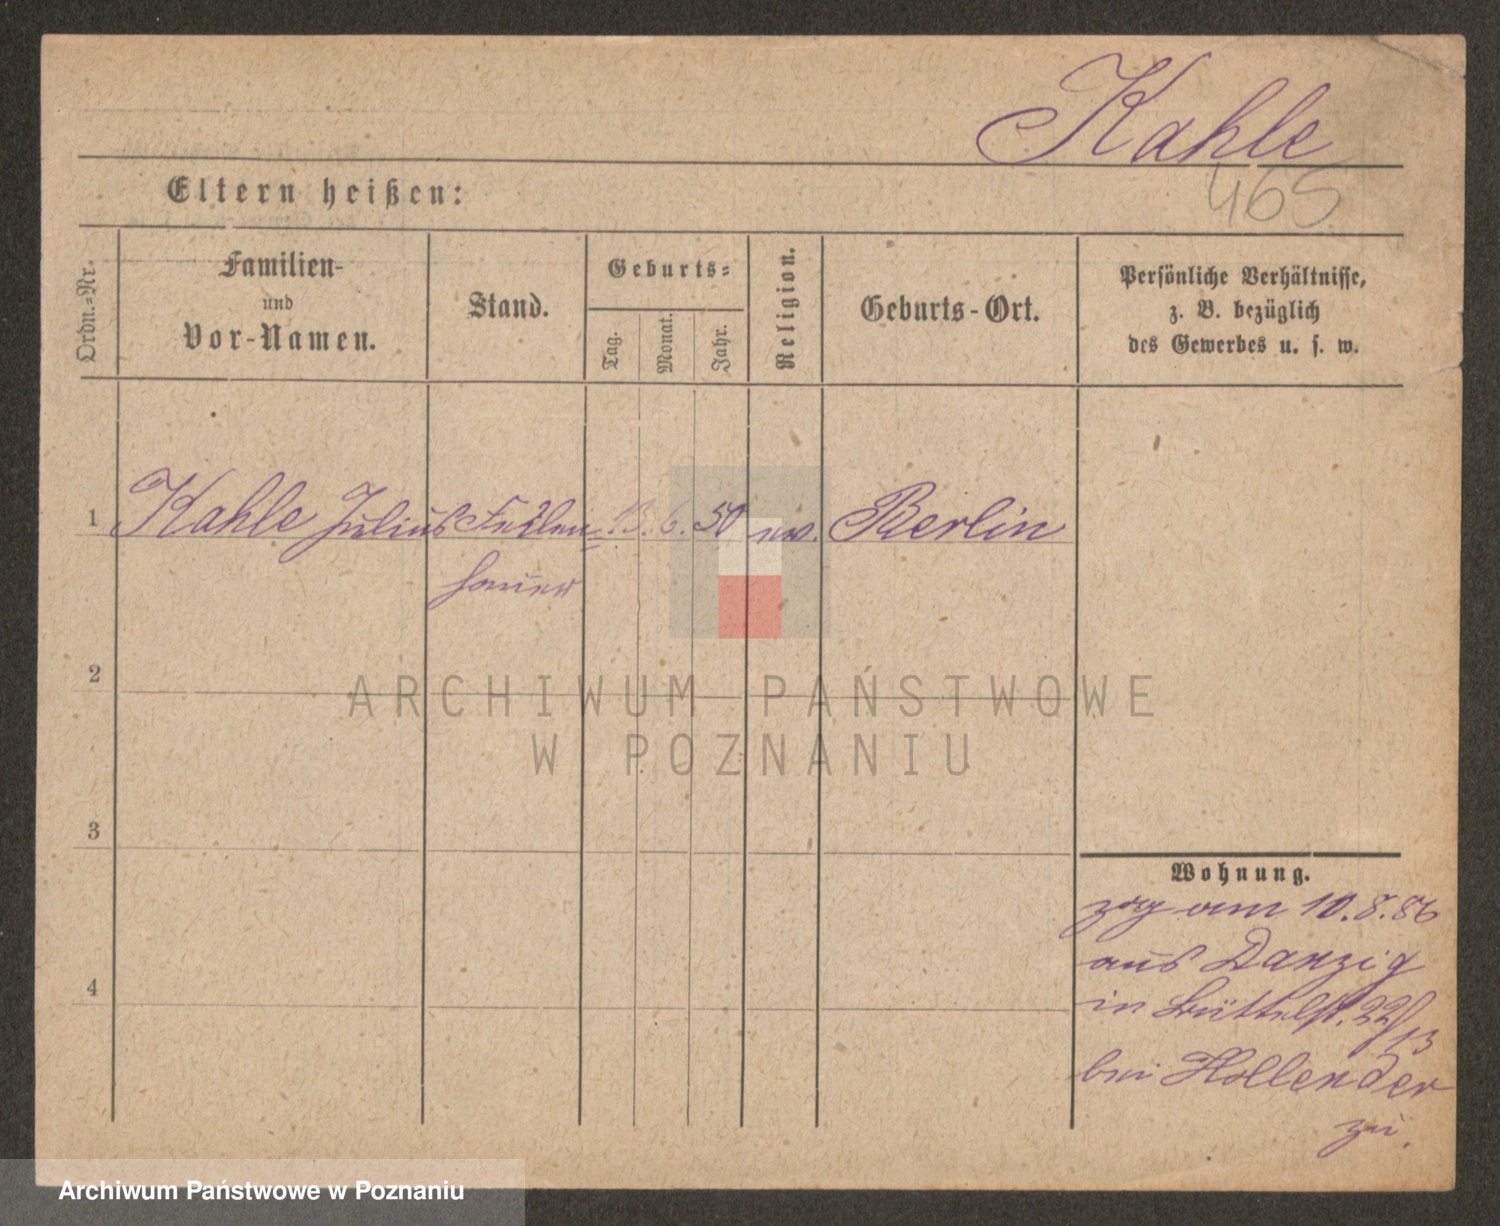 Kahle
465
Eltern heißen:
Ordn.=Nr.
Familien-
und
Vor-Namen.
Stand.
Geburts=
Tag.
Monat.
Jahr.
Religion.
Geburts-Ort.
Persönliche Verhältnisse,
z. B. bezüglich
des Gewerbes u. s. w.
1 Kahle Julius Feilen= 13. 6. 50 ev. Berlin
hauer
2
ARCHIWUM PAŃSTWOWE
W POZNANIU
3
Wohnung.
zog am 10.8.86
aus Danzig
4
in Büttelst. 22/
13
bei Hollender
zu.
Archiwum Państwowe w Poznaniu